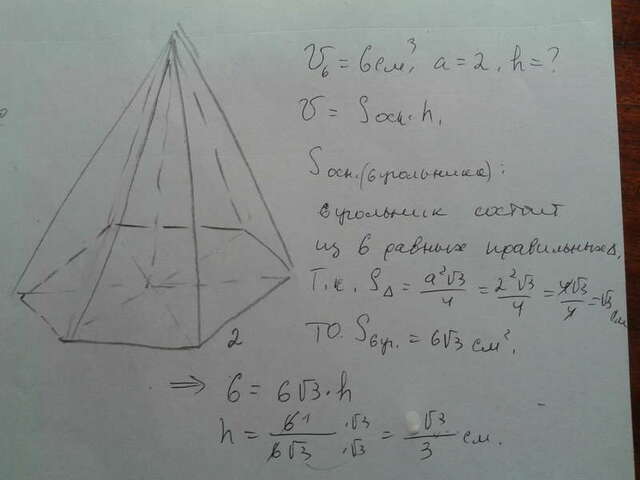 V₆ = 6 см³, a = 2, h = ?
V = Sосн. · h,
Sосн.(6угольника):
6угольник состоит
из 6 равных правильных Δ,
Т.к. SΔ = a²√3/4 = 2²√3/4 = 4√3/4 = √3 см
ТО. S6уг. = 6√3 см².
2
⇒ 6 = 6√3 · h
h = 6 1/6√3 ·√3/·√3 = √3/3 см.